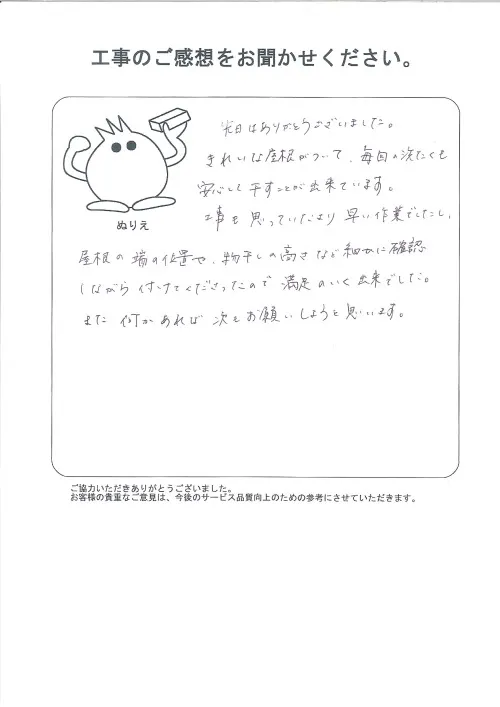 工事のご感想をお聞かせください。
先日はありがとうございました。
きれいな屋根がついて、毎日の洗たくも
安心して干すことが出来ています。
工事も思っていたより早い作業でしたし、
ぬりえ
屋根の端の位置や、物干しの高さなど細かに確認
しながら付けてくださったので満足のいく出来でした。
また何かあれば次もお願いしようと思います。
ご協力いただきありがとうございました。
お客様の貴重なご意見は、今後のサービス品質向上のための参考にさせていただきます。